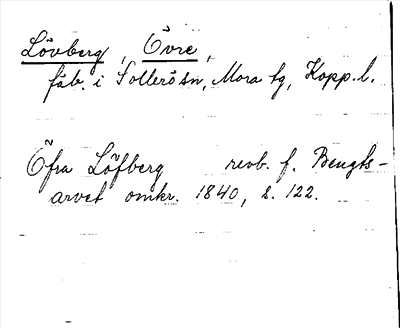 Lövberg, Övre,
fäb. i Sollerösn, Mora tg, Kopp.l.
Öfra Löfberg revb. f. Bengts-
arvet omkr. 1840, s. 122.